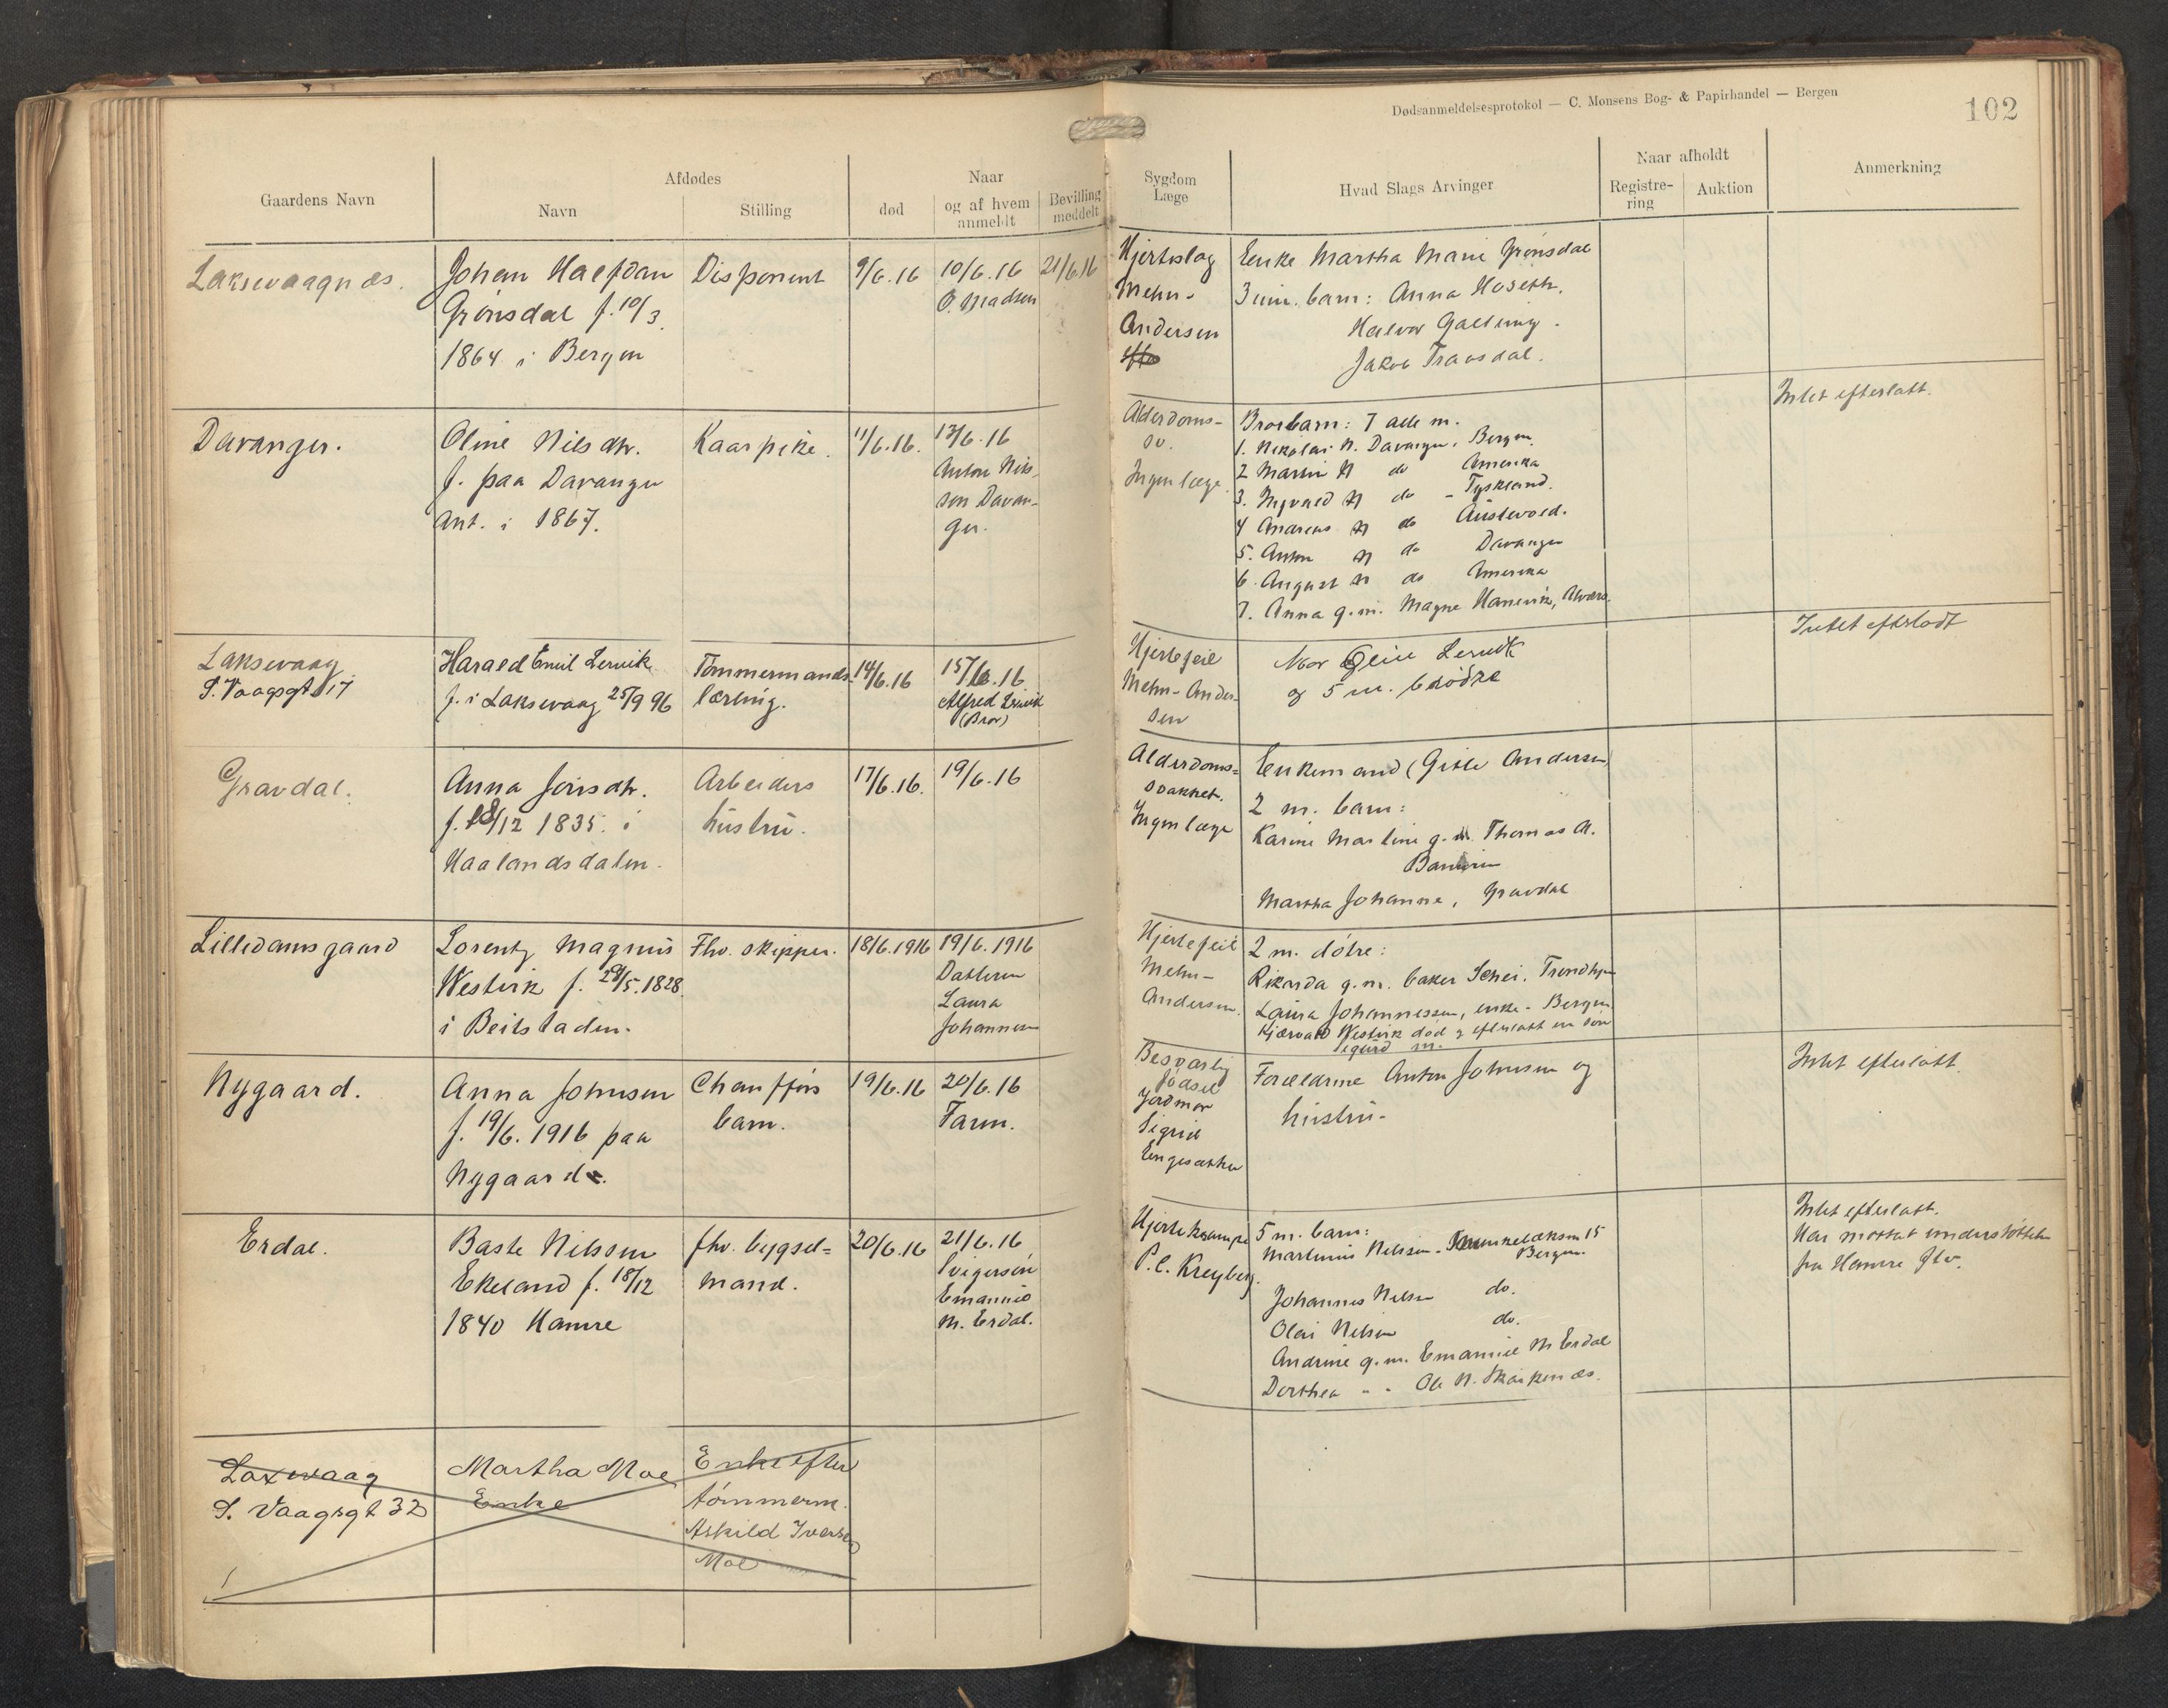 Dødsanmeldelsesprotokol — C. Monsens Bog- & Papirhandel — Bergen
102
Gaardens Navn
Afdødes
Navn
Stilling
død
Naar
og af hvem
anmeldt
Bevilling
meddelt
Sygdom
Læge
Hvad Slags Arvinger
Naar afholdt
Registre-
ring
Auktion
Anmerkning
Laksevaagnæs.
Johan Halfdan
Grønsdal f. 10/3.
1864 i Bergen
Disponent
9/6.16
10/6.16
O. Madsen
21/6.16
Hjerteslag
Mehn-
Andersen
Enke Martha Marie Grønsdal
3 um. barn: Anna Hoseth.
Halvor
Jakob
Davanger.
Oline Nilsdtr.
f. paa Davanger
ant. i 1867.
Kaarpike.
11/6.16.
13/6.16
Anton Nils-
son Davan-
ger.
Alderdoms-
sv.
Ingen læge.
Brorbarn: 7 alle m.
1. Nikolai N. Davanger, Bergen.
2 Martin N do Amerika
3. Ingvald N do - Tyskland.
4 Andreas N do Austevold.
5. Anton N do Davanger
6. August N do Amerika
7. Anna g.m. Magne Hanevik,
Intet efterlatt.
Laksevaag
S. Vaagsgt 17
Harald Emil Lervik
f. i Laksevaag 25/9 96
Tømmermands-
lærling.
14/6.16
15/6.16
Alfred Lervik
(Bror)
Hjertefeil
Mehn-Ander-
sen
Mor Oline Lervik
og 5 m. brødre
Intet efterladt
Gravdal.
Anna Jonsdtr.
f. 18/12 1835. i
Haalandsdalen.
Arbeiders
hustru.
17/6.16.
19/6.16
Alderdoms=
svakhet.
Ingen læge
Enkemand (Gitle Andersen)
2 m. barn:
Karine Martine g.m. Thomas A.
Martha Johanne, Gravdal
Lilledamsgaard
Lorentz Magnus
Westvik f. 29/5.1828.
i Beitstaden.
Fhv. skipper.
18/6.1916
19/6.1916
Datteren
Laura
Johannessen
Hjertefeil
Mehn-
Andersen.
2 m. døtre:
Rikarda g.m. baker Schei. Trondhjem
Laura Johannessen, enke - Bergen
Westvik død & efterlatt en søn
Sigurd m.
Nygaard.
Anna Johnsen
f. 19/6. 1916 paa
Nygaard.
Chaufførs
barn.
19/6.16
20/6.16
Faren.
Besværlig
fødsel
Jordmor
Sigrid
Engesæther
Forældrene Anton Johnsen og
hustru-
Intet efterlatt.
Erdal.
Baste Nilssen
Ekeland f. 18/12
1840 Hamre
fhv. bygsel=
mand.
20/6.16
21/6.16
Svigersøn
Emanuel
M. Erdal.
Hjertekrampe
P.C. Kreyberg.
5 m. barn:
Martinus Nilssen - Munkelæksm 15
Bergen.
Johannes Nilsen do.
Olai Nilsen do.
Andrine g.m. Emanuel M Erdal
Dorthea " " Ole N.
Intet efterlatt.
Har mottat understøttelse
fra Hamre
Laxevaag
S. Vaagsgt 32
Martha Moe
Enke
Enke efter
tømmerm.
Askild Iversen
Moe